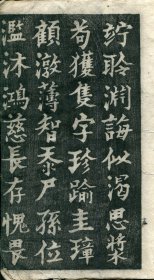 竚聆渊誨似渴思漿
苟獲隻字珍踰圭璋
顧溦薄智忝尸孫位
濫沐鴻慈長存愧畏